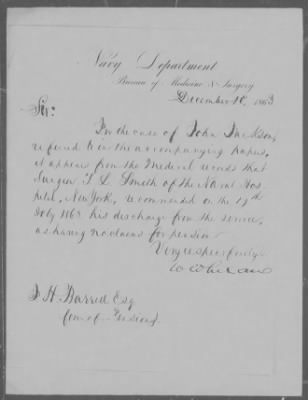 Navy Department
Bureau of Medicine & Surgery
December 18, 1863
Sir:
In the case of John
referred to in the accompanying papers,
it appears from the Medical records that
Surgeon T. L. Smith of the Naval Hos-
pital, New York, recommended on the 17th
July 1863 his discharge from the service,
as having no claims for pension
Very respectfully
W Whelan
J. H. Barrett Esq
Com of Pensions